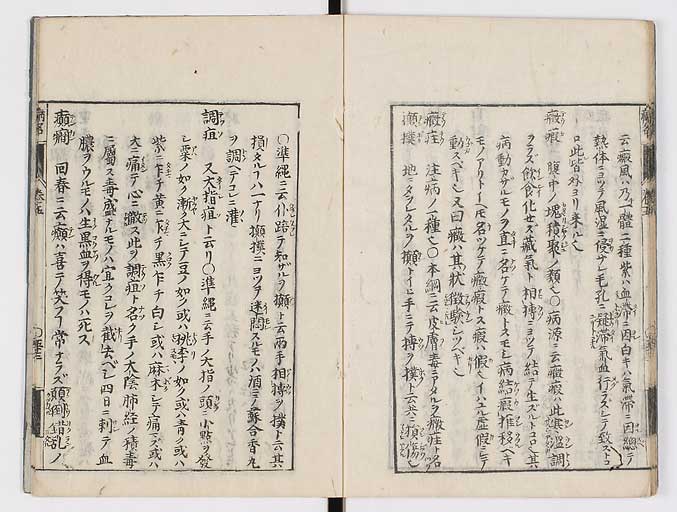 云癜風ハ乃一體二種紫ハ血滯ニ因白キハ氣滯ニ因總テ
熱体ニヨツテ風湿ニ侵サレ毛孔ニ凝滞氣血行ラズシテ致ストコ
ロ此皆外ヨリ来ル
癥瘕 腹中ノ塊積聚ノ類○病源ニ云癥瘕ハ此寒温調
ヲラズ飲食化セズ藏氣ト相搏ニヨツテ結テ生ズルトコロ其
病動カサルモノヲ直ニ名ケテ癥トスモシ病結瘕推移ベキ
モノアリトイヘモ名ツケテ癥瘕トス瘕ハ假ヘイハユル虚假シテ
動スベキ又曰癥ハ其状徴驗シツベキ
癥疰 注病ノ一種○本綱ニ云皮膚毒ニアタルヲ癥疰ト名
攧撲 地ニタツレタルヲ攧トイヒ手ニテ搏ヲ撲ト云共ニ損傷
○準縄ニ云仆踣テ知ザルヲ攧ト云兩手相搏ヲ撲ト云其
損タルフハ一ナリ攧撲ニヨツテ迷悶スルモノハ酒ニテ蘇合香丸
ヲ調ヘテコレニ灌
調疽 又大指疽ト云リ○準縄ニ云手ノ大指ノ頭ニ小點ヲ發
シ粟ノ如ク漸々大シテ豆ノ如ク或ハ桃ノ如ク或ハ青ク或ハ
紫ニ乍チ黄ニ乍チ黒ク乍チ白シ或ハ麻木シテ痛マズ或ハ
大ニ痛テ心ニ徹ス此ヲ調疽ト名ク手ノ大陰肺經ノ積毒
ニ屬ス毒盛ナルモノハ宜クコレヲ截去ベシ四日ニ刺テ血
膿ヲウルモノハ生黒血ヲ得モノハ死ス
癲癇 回春ニ云癲ハ喜テ笑フ常ナラズ顛倒錯乱ノ